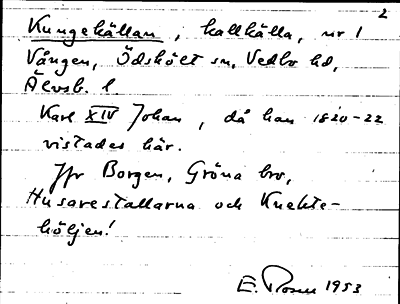 2
Kungekällan, kallkälla, nr 1
Vången, Ödskölt sn, Vedbo hd,
Älvsb. l.
Karl XIV Johan, då han 1820-22
vistades här.
Jfr Borgen, Gröna bro,
Husarestallarna och Knekte-
höljen!
E. Rosen 1953